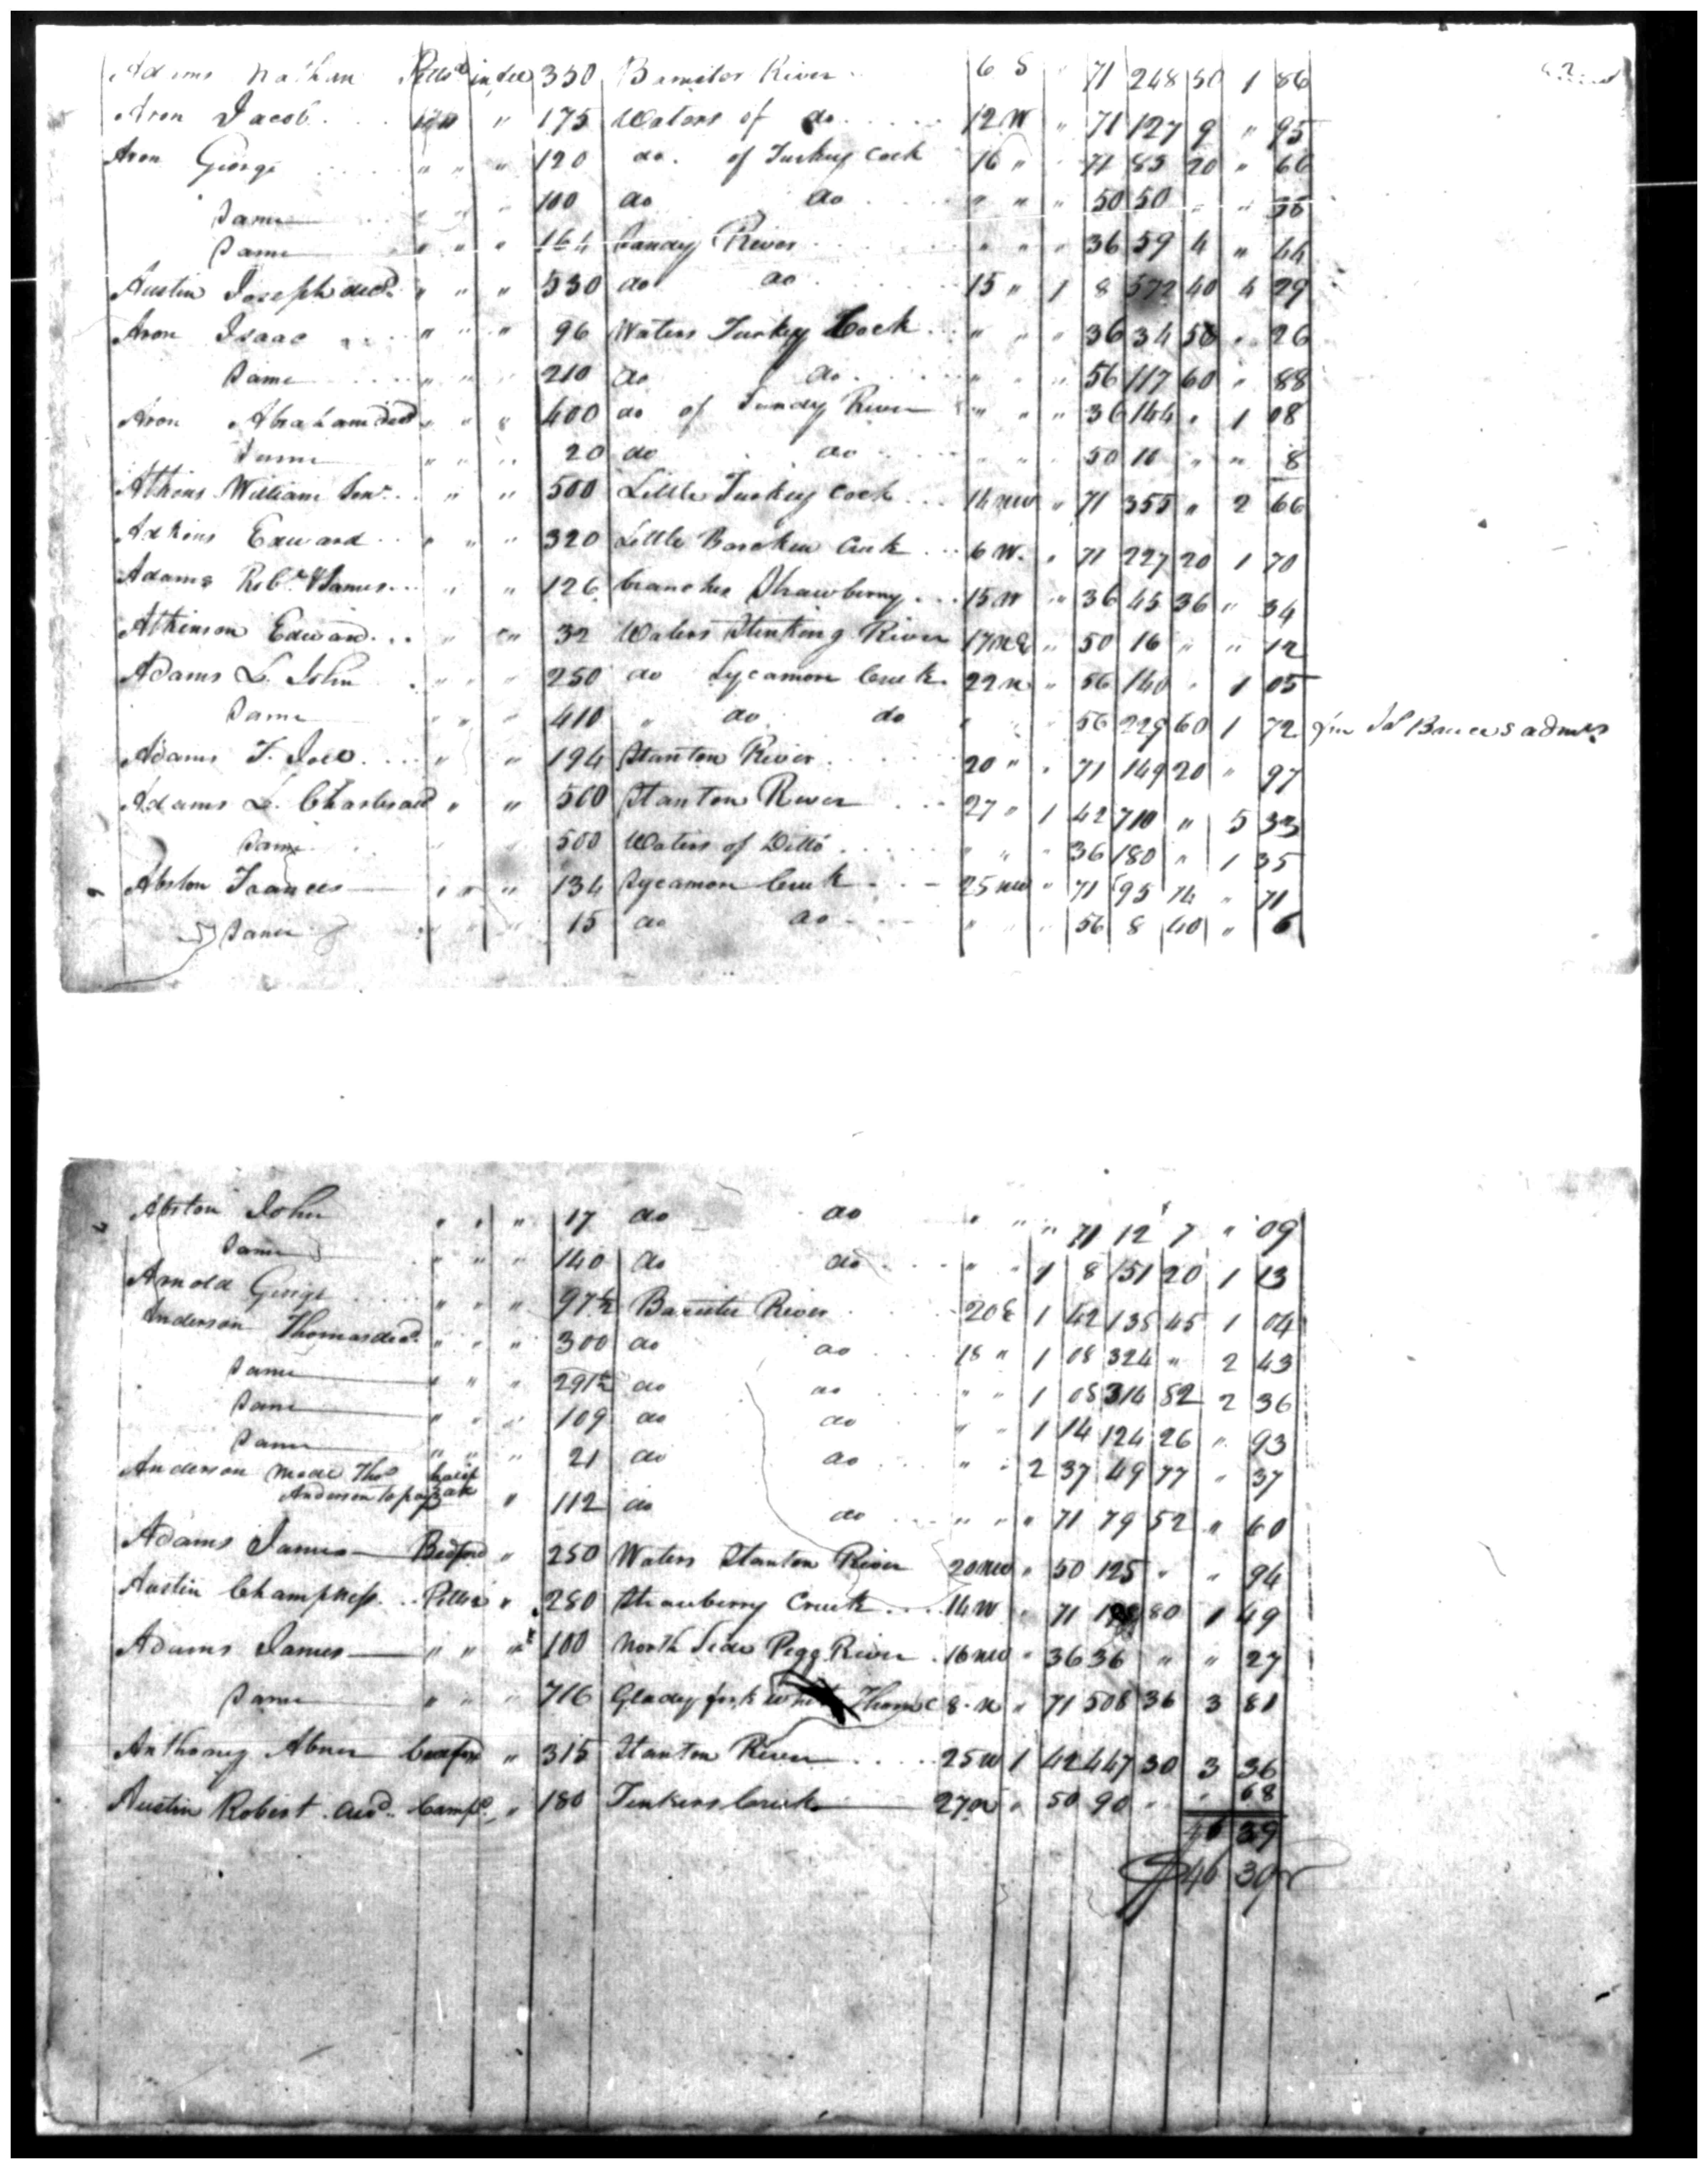 Adams Nathan Pittsa in fee 350 Banister River 6 S " 71 248 50 1 86
Aron Jacob " " 175 Waters of do 12 W " 71 127 9 " 95
Aron George " " " 120 do. of Turkey Cock 16 " " 71 85 20 " 66
Same " " " 100 do do " " " 50 50 " " 38
Same " " " 164 Sandy River " " " 36 59 4 " 44
Austin Joseph decd " " " 530 do do 15 " 1 8 572 40 4 29
Aron Isaac " " " 96 Waters Turkey Cock " " " 36 34 56 " 26
Same " " " 210 do do " " " 56 117 60 " 88
Aron Abraham decd " " " 400 do of Sandy River " " " 36 144 " 1 08
Same " " " 20 do do " " " 50 10 " " 8
Atkins William Senr " " 500 Little Turkey Cock 14 NW " 71 355 " 2 66
Adkins Edward " " " 320 Little Bareskin Creek 6 W. " 71 227 20 1 70
Adams Robt & James " " 126 branches Strawberry 15 W " 36 45 36 " 34
Atkinson Edward " " 32 Waters Stinking River 17 NE " 50 16 " " 12
Adams L. John " " " 250 do Sycamore Creek 22 N " 56 140 " 1 05
Same " " " 410 " do do " " 56 229 60 1 72 fm Js Bruces admrs
Adams T. Joel " " 194 Stanton River 20 " " 71 149 20 " 97
Adams L. Charles decd " " 500 Stanton River 27 " 1 42 710 " 5 33
Same " " 500 Waters of Ditto " " " 36 180 " 1 35
Abston Frances " " " 134 Sycamore Creek 25 NW " 71 95 14 " 71
Same " " " 15 do do " " " 56 8 40 " 6
Abston John " " " 17 do do " " " 71 12 7 " 09
Same " " " 140 do do " " 1 8 151 20 1 13
Arnold George " " " 97½ Banister River 20 E 1 42 138 45 1 04
Anderson Thomas decd " " " 300 do do 18 " 1 08 324 " 2 43
Same " " " 291½ do do " " 1 08 314 82 2 36
Same " " " 109 do do " " 1 14 124 26 " 93
Same " " " 21 do do " " 2 37 49 77 " 37
Anderson Made Thos Halif
Anderson to pay tax " 112 do do " " " 71 79 52 " 60
Adams James Bedford " 250 Waters Stanton River 20 NW " 50 125 " " 94
Austin Champness Pittsa " 280 Strawberry Creek 14 W " 71 198 80 1 49
Adams James " " " 100 North Side Pigg River 16 NW " 36 36 " " 27
Same " " " 716 Glady fork White Thorne 8 N " 71 508 36 3 81
Anthony Abner " 315 Stanton River 25 W 1 42 447 30 3 36
Austin Robert decd Campl " 180 Tinkers Creek 27 N " 50 90 " " 68
46 39
$46 39